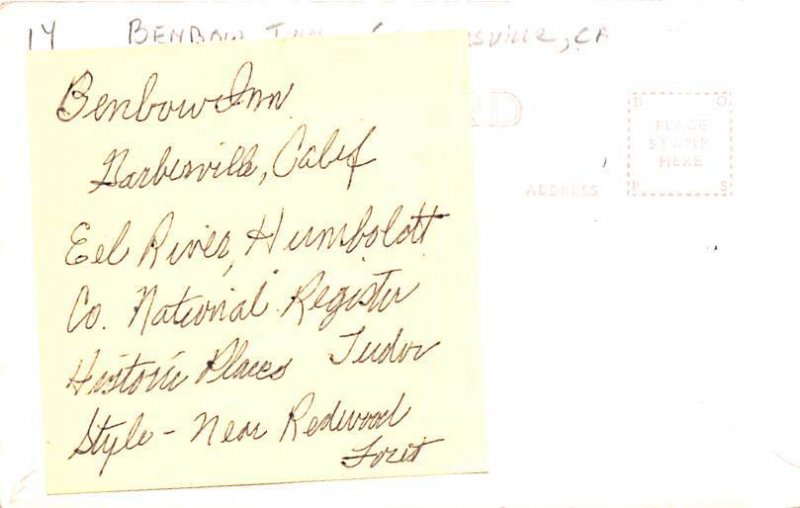 14 BENBOW INN sville, CA
Benbow Inn
Garberville, Calif
Eel River, Humboldt
Co. National Register
Historic Places Tudor
Style - Near Redwood
Forest
RD
PLACE
STAMP
HERE
ADDRESS